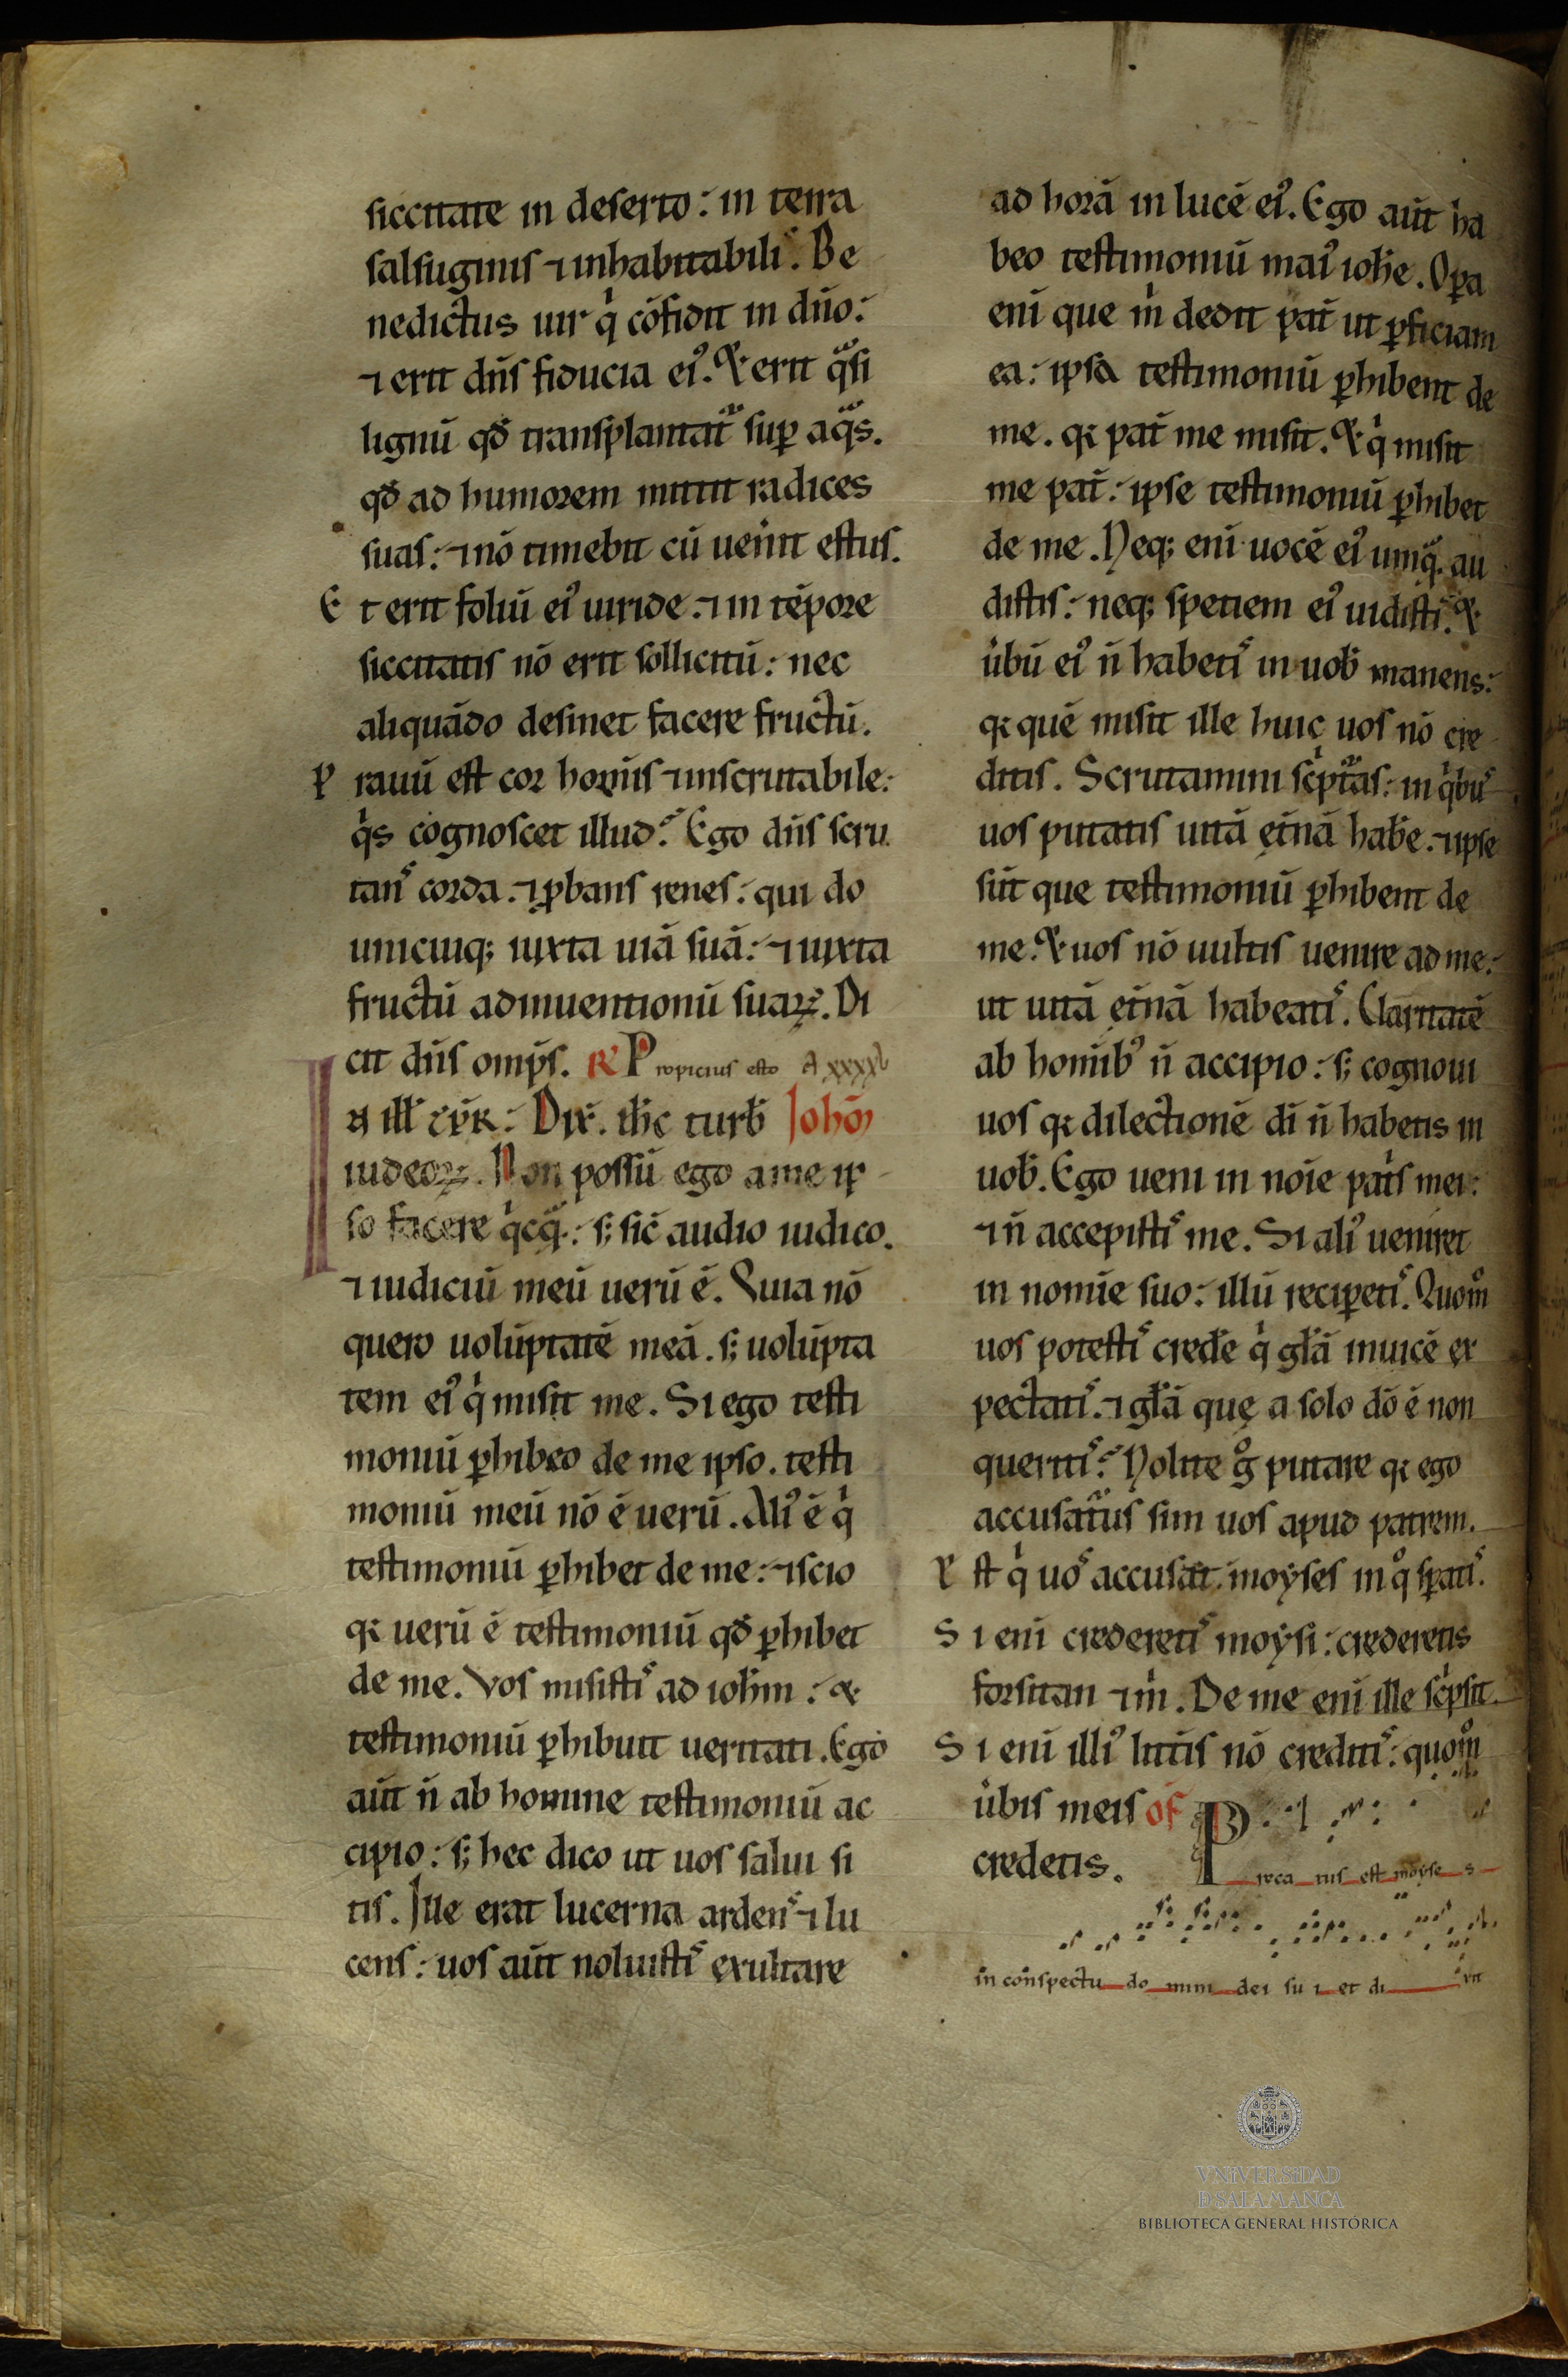 siccitate in deserto: in terra
salsuginis ⁊ inhabitabili. Be
nedictus uir q̇ cōfidit in dn̄o:
⁊ erit dn̄s fiducia eiꝰ. Et erit qᵃsi
lignū qđ transplantat̄ suꝑ aqᵃs.
qđ ad humorem mittit radices
suas: ⁊ nō timebit cū uen̄it estus.
Et erit foliū eiꝰ uiride. ⁊ in tēpore
siccitatis nō erit sollicitū: nec
aliquādo desinet facere fructū.
Prauū est cor hoīnis ⁊ inscrutabile:
qⁱs cognoscet illud? Ego dn̄s scru
tans corda. ⁊ ꝓbans renes: qui do
unicuiq; iuxta uiā suā: ⁊ iuxta
fructū adinuentionū suaꝝ. Di
cit dn̄s omp̄s. R Propicius esto A xxxx
In ill̄ Dix̄. ih̄c turb̄ Johō
iudeoꝝ. Non possū ego a me ip
so facere qⁱcqᵃ: s; sic̄ audio iudico.
⁊ iudiciū meū uerū ē. Quia nō
quero uolūptatē meā. s; uolūpta
tem eiꝰ qⁱ misit me. Si ego testi
moniū ꝑhibeo de me ipso. testi
moniū meū nō ē uerū. Aliꝰ ē qⁱ
testimoniū ꝑhibet de me: ⁊ scio
q; uerū ē testimoniū qđ ꝑhibet
de me. Vos misistis ad ioh̄m: et
testimoniū ꝑhibuit ueritati. Ego
aūt n̄ ab homine testimoniū ac
cipio: s; hec dico ut uos salui si
tis. Ille erat lucerna ardens ⁊ lu
cens: uos aūt noluistis exultare
ad horā in lucē eiꝰ. Ego aūt ha
beo testimoniū maiꝰ ioh̄e. Oꝑa
eni que m̄ dedit pat̄ ut ꝑficiam
ea: ipsa testimoniū ꝑhibent de
me. q; pat̄ me misit. Et qⁱ misit
me pat̄: ipse testimoniū ꝑhibet
de me. Neq; eni uocē eiꝰ umqᵃ. au
distis: neq; spetiem eiꝰ uidistis. Et
ūbū eiꝰ n̄ habetis in uob̄ manens:
q; quē misit ille huic uos nō cre
ditis. Scrutamini sc̄pt̄as: in qⁱbus
uos putatis uitā et̄nā hab̄e. ⁊ ipse
sūt que testimoniū ꝑhibent de
me. Et uos nō uultis uenire ad me:
ut uitā et̄nā habeatis. Claritatē
ab homībꝰ n̄ accipio: s; cognoui
uos q; dilectionē dī n̄ habetis in
uob̄. Ego ueni in noīe pat̄s mei:
⁊ n̄ accepistis me. Si aliꝰ ueniret
in nomīe suo: illū reciꝑetis. Quom̊
uos potestis cred̄e qⁱ gl̄ā inuicē ex
pectatis. ⁊ gl̄ā quę a solo dō ē non
queritis? Nolite gͦ putare q; ego
accusat̄us sim uos apud patrem.
Est qⁱ uos accusat. moyses in qͦ sꝑatis.
Si eni crederetis moysi: crederetis
forsitan ⁊ m̄. De me eni ille sc̄psit.
Si eni illiꝰ litt̄is nō creditis: quom̊
ūbis meis of
credetis. Precatus est moyses
in conspectu domini dei sui et di xit
VNiVERSiDAD
D SALAMANCA
BIBLIOTECA GENERAL HISTÓRICA